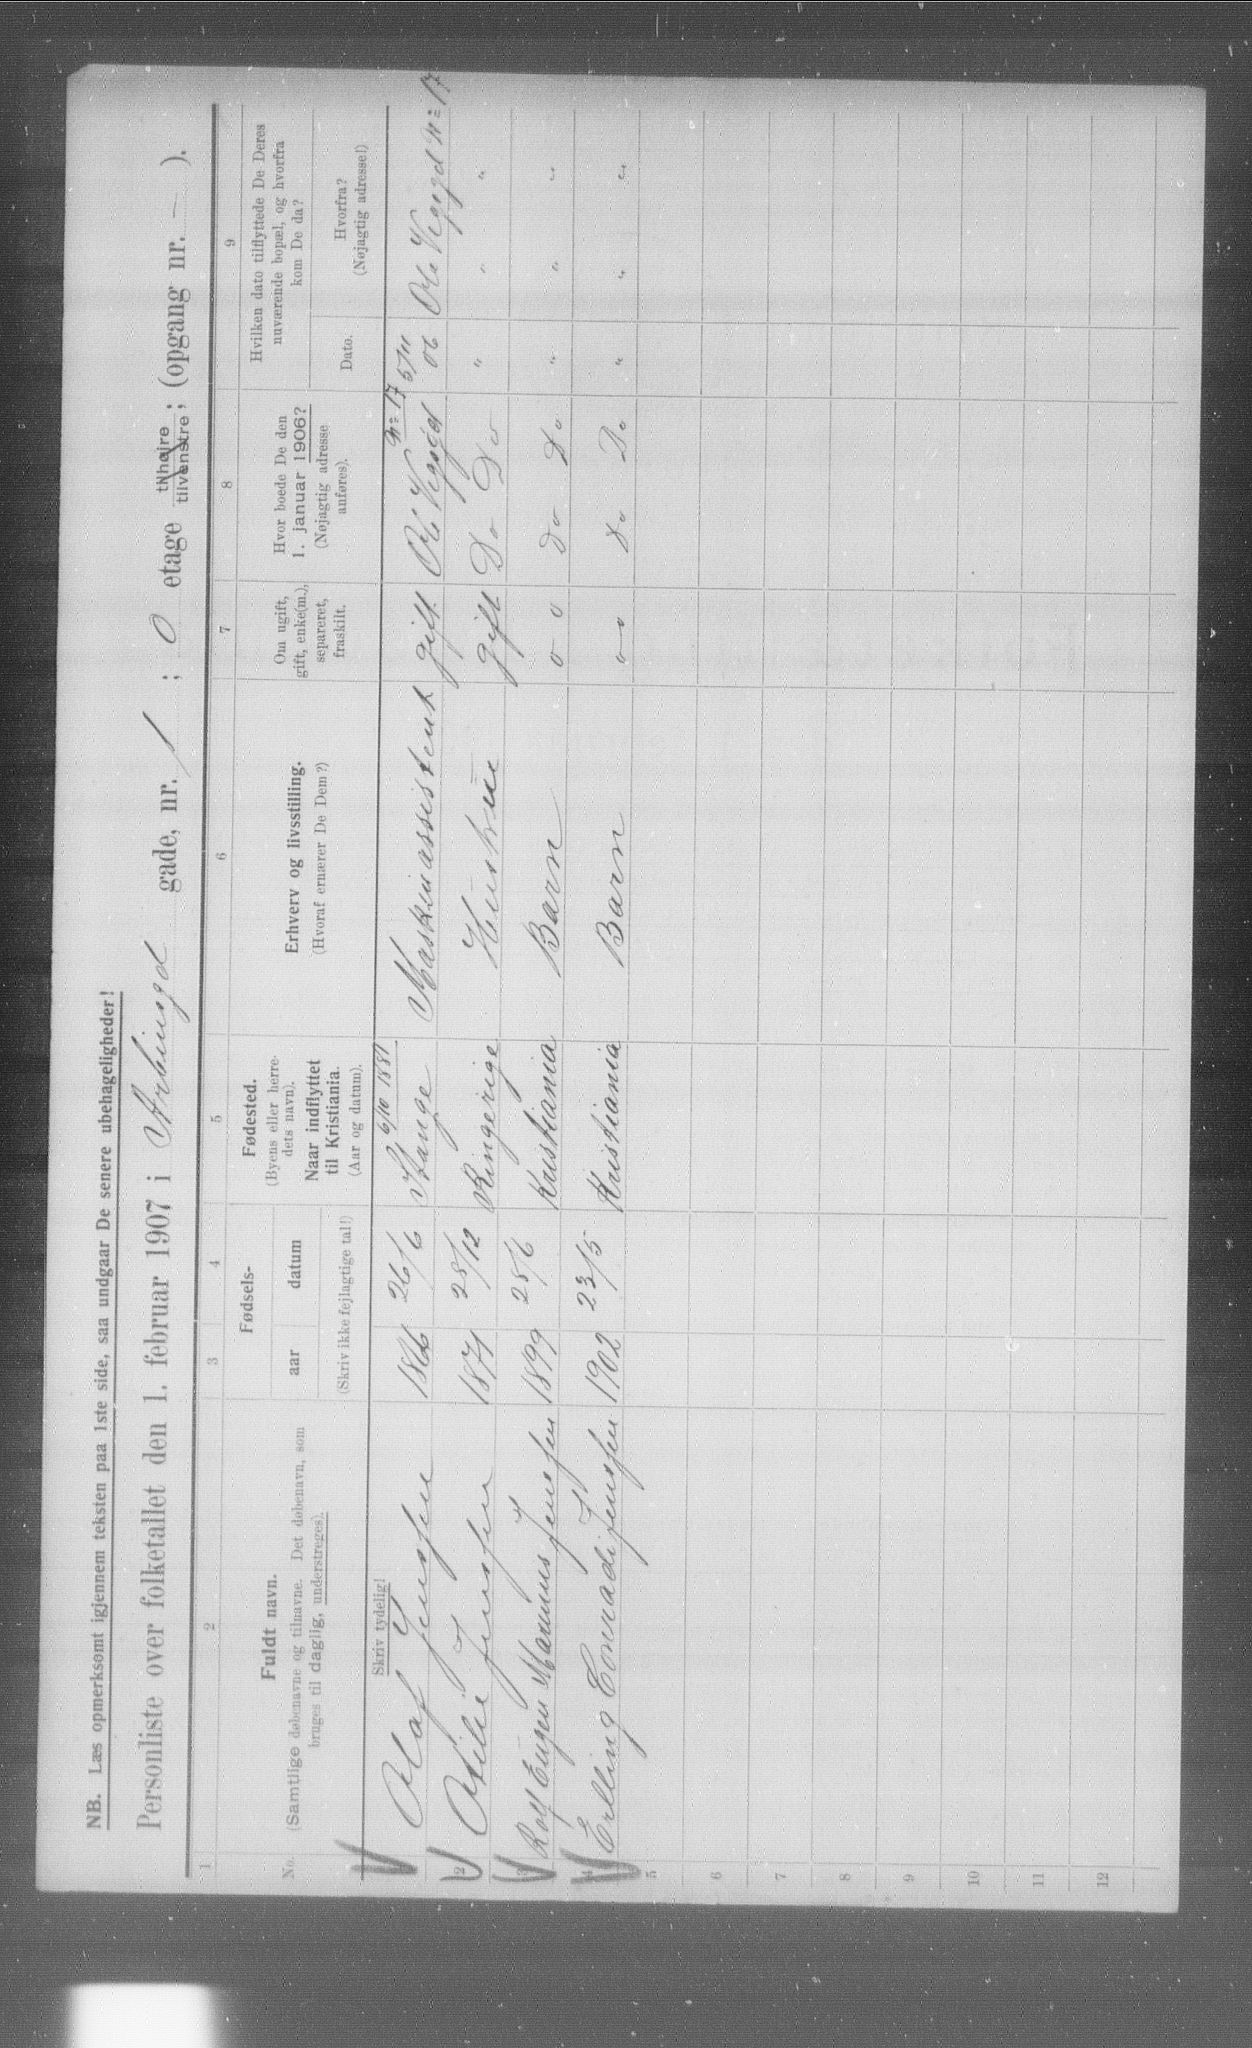 NB. Læs opmerksomt igjennem teksten paa 1ste side, saa undgaar De senere ubehageligheder!
Personliste over folketallet den 1. februar 1907 i Arbinsgd gade, nr. 1 ; 0 etage tilhøjre tilvenstre; (opgang nr. — ).
1 2 3 4 5 6 7 8 9
No.
Fuldt navn.
(Samtlige døbenavne og tilnavne. Det døbenavn, som
bruges til daglig, understreges).
Fødsels-
aar datum
(Skriv ikke fejlagtige tal!)
Fødested.
(Byens eller herre-
dets navn).
Naar indflyttet
til Kristiania.
(Aar og datum).
Erhverv og livsstilling.
(Hvoraf ernærer De Dem?)
Om ugift,
gift, enke(m.),
separeret,
fraskilt.
Hvor boede De den
1. januar 1906?
(Nøjagtig adresse
anføres).
Hvilken dato tilflyttede De Deres
nuværende bopæl, og hvorfra
kom De da?
Dato.
Hvorfra?
(Nøjagtig adresse!)
Skriv tydelig!
6/10 1881 No 17 5/11
Olaf Jenssen 1866 26/6 Stange Maskinassistent gift Ole Vigsgd 06 Ole Vigsgd No 17
2 Otilie Jenssen 1871 28/12 Ringerige Hustrue gift Do Do " " "
3 Rolf Eugen Marinus Jenssen 1899 28/6 Kristiania Barn o o Do Do " " "
4 Erlling Conradi Jenssen 1902 23/5 Kristiania Barn o o Do Do " " "
5
6
7
8
9
10
11
12